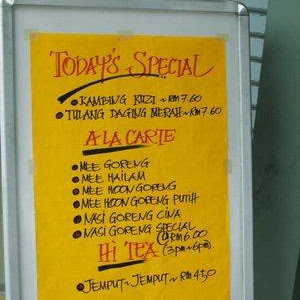 TODAY'S SPECIAL
KAMBING KUZI ~ RM7.60
TULANG DAGING MERAH ~ RM7.60
A LA CARTE
MEE GORENG
MEE HAILAM
MEE HOON GORENG
MEE HOON GORENG PUTIH
NASI GORENG CINA
NASI GORENG SPECIAL
@RM6.00
Hi TEA (3pm~6pm)
JEMPUT~JEMPUT~RM4.50